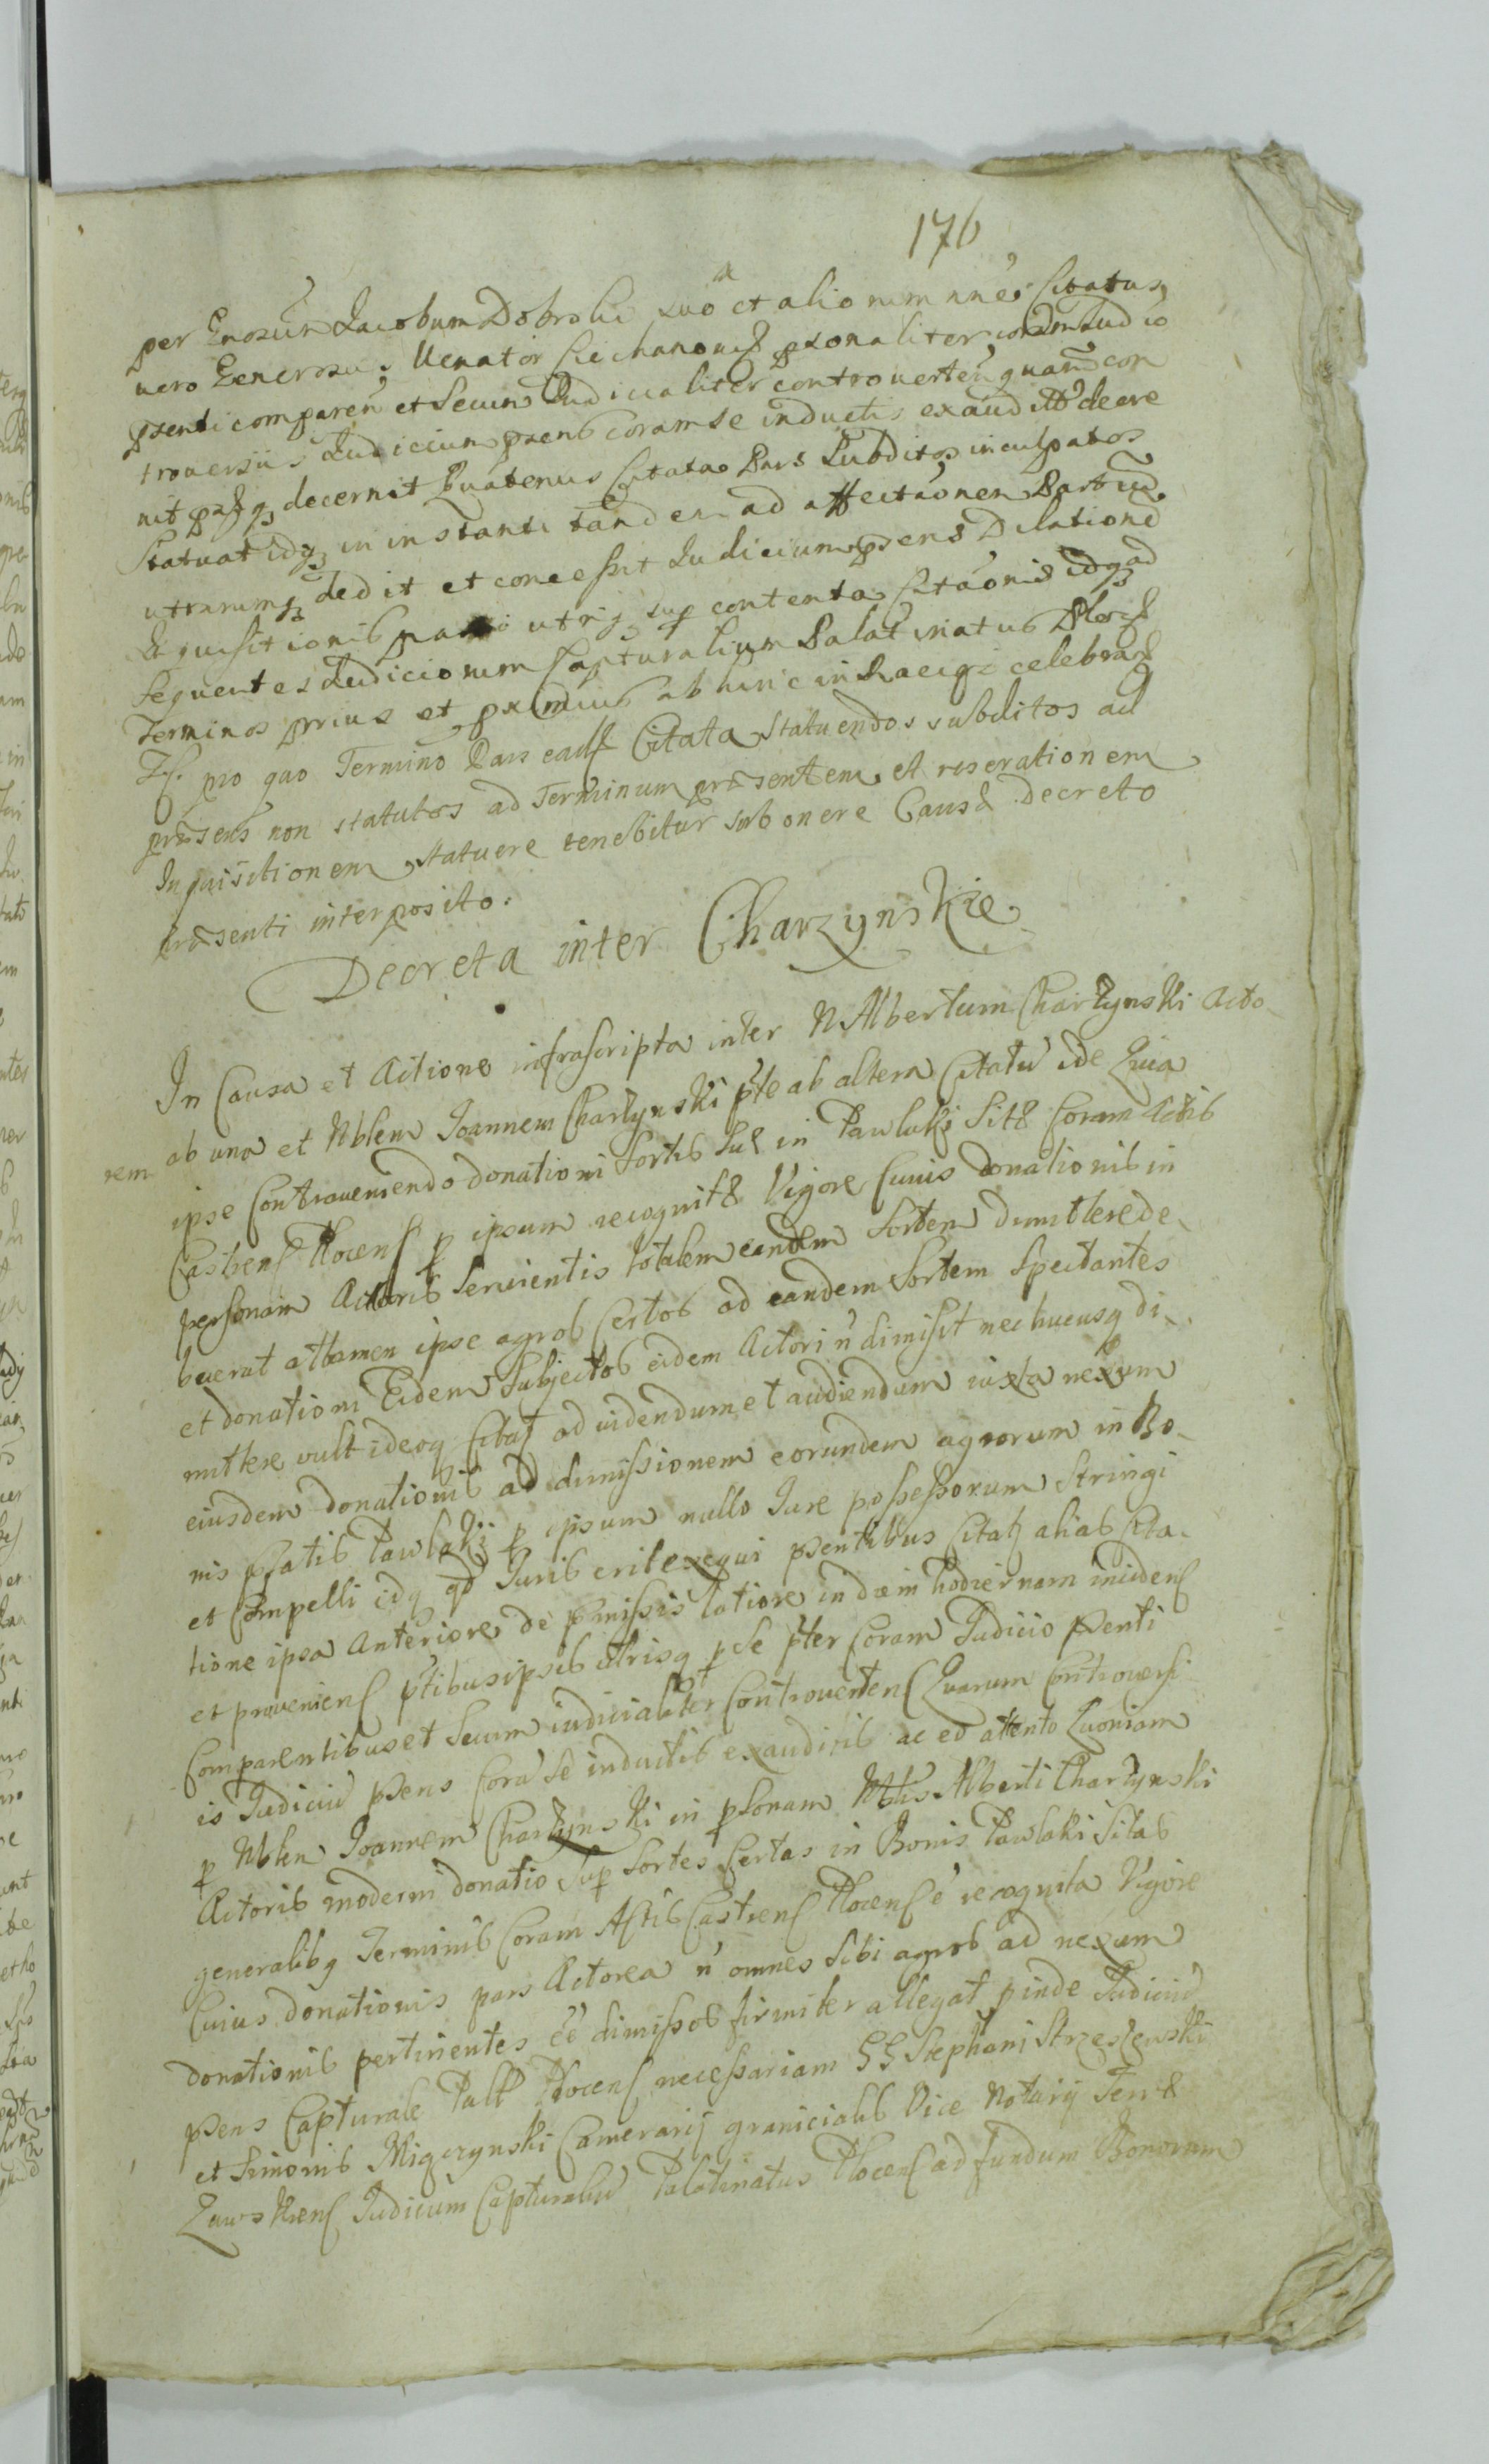 176
per Gnosum Jacobum Dobrski suo et aliorum nne Citatus
vero Generosus Venator Ciechanouѕ psonaliter coram Judicio
psenti comparen et Secum Judicialiter controverten quarum con
troversiis Judicium psens coram se inductis exauditis decre
nit decernit Quatenus Citata Pars Subditos inculpatos
Statuat idq in instanti tandem ad affectaonem Partium
utrarumq dedit et concessit Judicium psens Dilatione
Inquisitionis parti utriq sup contenta Citaonis idq ad
Sequentes Judiciorum Capturalium Palatinatus Ploc
Terminos prius et ab hinc in Raciąz celebrand
pro quo Termino Pars eadem Citata Statuendos subditos ad
præsens non statutos ad Terminum præsentem et reserationem
Inquisitionem statuere tenebitur sub onere Causæ decreto
præsenti interposito.
Decreta inter Charzynskie
In Causa et Actione infrascripta inter N Albertum Charzynski Acto
rem ab una et Nblem Joannem Charzynski pte ab altera Citatu ide Quia
ipse Contraveniendo donationi Sortis Suæ in Pawlaki Sitæ Coram Actis
Castren Plocen p ipsum recognitæ Vigore Cuius donationis in
personam Actoris Servientis totalem eandem Sortem dimittere de
buerat attamen ipse agros Certos ad eandem Sortem Spectantes
et donationi Eidem Subjectos eidem Actori n dimisit nec hucusq di
mittere vult ideoq Citat ad videndum et audiendum iuxta nexum
eiusdem donationis ad dimissionem eorundem agrorum in Bo
nis pfatis Pawlaki p ipsum nullo Jure possessorum Stringi
et Compelli idq qd Juris erit exequi psentibus Citat alias Cita
tione ipsa Anteriore de pmissis latiore in diem hodiernam inciden
et provenien ptibus ipsis utrisq p Se pter Coram Judicio psenti
Comparentibus et Secum iudicialiter Controverten Quarum Controversi
is Judiciu psens Cora Se inductis exauditis ac eo attento Quoniam
p Nblem Joannem Charzynski in psonam Nblis Alberti Charzynski
Actoris moderni donatio Sup Sortes Certas in Bonis Pawlaki Sitas
generalibq Terminis Coram Actis Castren Plocen e recognita Vigore
Cuius donationis pars Actorea n omnes Sibi agros ad nexum
donationis pertinentes ee dimissos firmiter allegat pinde Judiciu
psens Capturale Palt Plocen necessariam GG Stephani Strzeszewski
et Simonis Migczynski Camerarij granicialis Vice Notarij Terræ
Zawskren Judicum Capturaliu Palatinatus Plocen ad fundum Bonorum